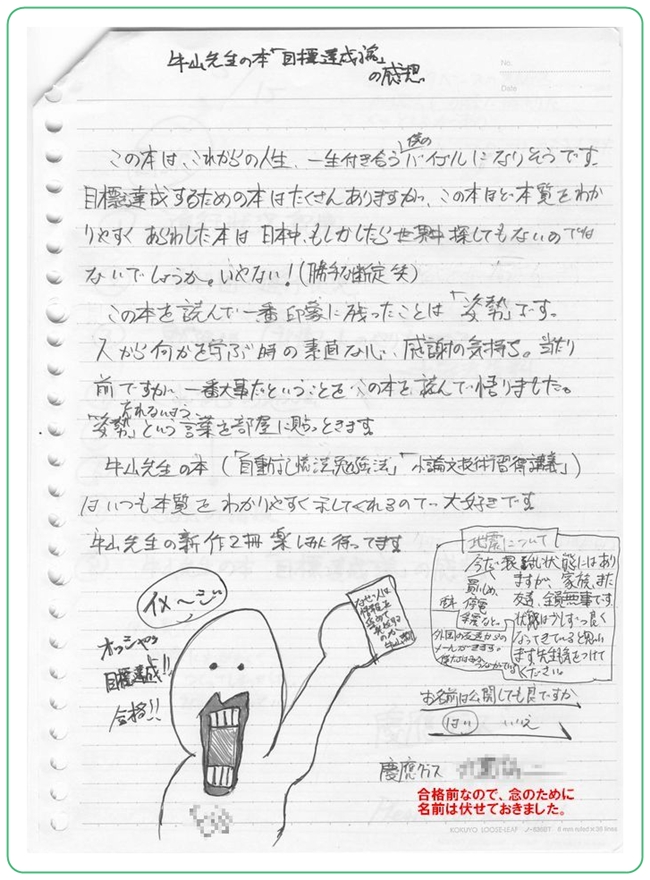 牛山先生の本「目標達成論」
の感想
No.
Date
この本は、これからの人生、一生付き合う僕のバイブルになりそうです。
目標を達成するための本はたくさんありますが、この本ほど本質をわか
りやすくあらわした本は日本中、もしかしたら世界中探してもないのでは
ないでしょうか。いやない!(勝手な断定 笑)
この本を読んで一番印象に残ったことは「姿勢」です。
人から何かを学ぶ時の素直な心、感謝の気持ち。当たり
前ですが、一番大事だということをこの本を読んで悟りました。
忘れないよう
「姿勢」という言葉を部屋に貼っときます
牛山先生の本(「自動記憶法勉強法」「小論文技術習得講義」)
はいつも本質をわかりやすく示してくれるので大好きです
牛山先生の新作2冊楽しみに待ってます
地震について
今だ混乱状態にはあり
ますが、家族、また
友達、全員無事です
買いしめ、
停電
状態は少しずつ良く
なってきていると思い
ます先生も気をつけて
ください。
外国の友達からの
イメ〜ジ
オッシャッ
目標達成!!
合格!!
お名前は公開しても良ですか
はい いいえ
慶應クラス
合格前なので、念のために
名前は伏せておきました。
KOKUYO LOOSE-LEAF